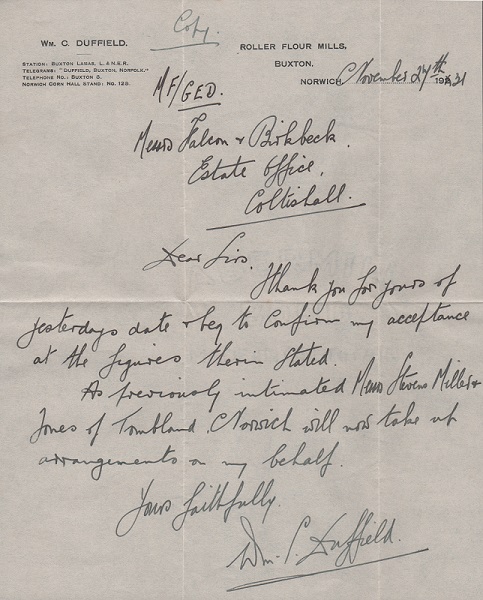 Copy.
WM. C. DUFFIELD.
STATION: BUXTON LAMAS, L. & N.E.R.
TELEGRAMS: "DUFFIELD, BUXTON, NORFOLK."
TELEPHONE NO.: BUXTON 5.
NORWICH CORN HALL STAND: NO. 123.
ROLLER FLOUR MILLS,
BUXTON,
NORWICH, November 27th 1931
MF/GED.
Messrs Falcon & Birkbeck.
Estate Office,
Coltishall.
Dear Sirs.
I thank you for yours of
yesterdays date & beg to confirm my acceptance
at the figures therin stated.
As previously intimated Messrs Stevens Miller &
Jones of Tombland. Norwich will now take up
arrangements on my behalf.
Yours faithfully.
Wm. C. Duffield.